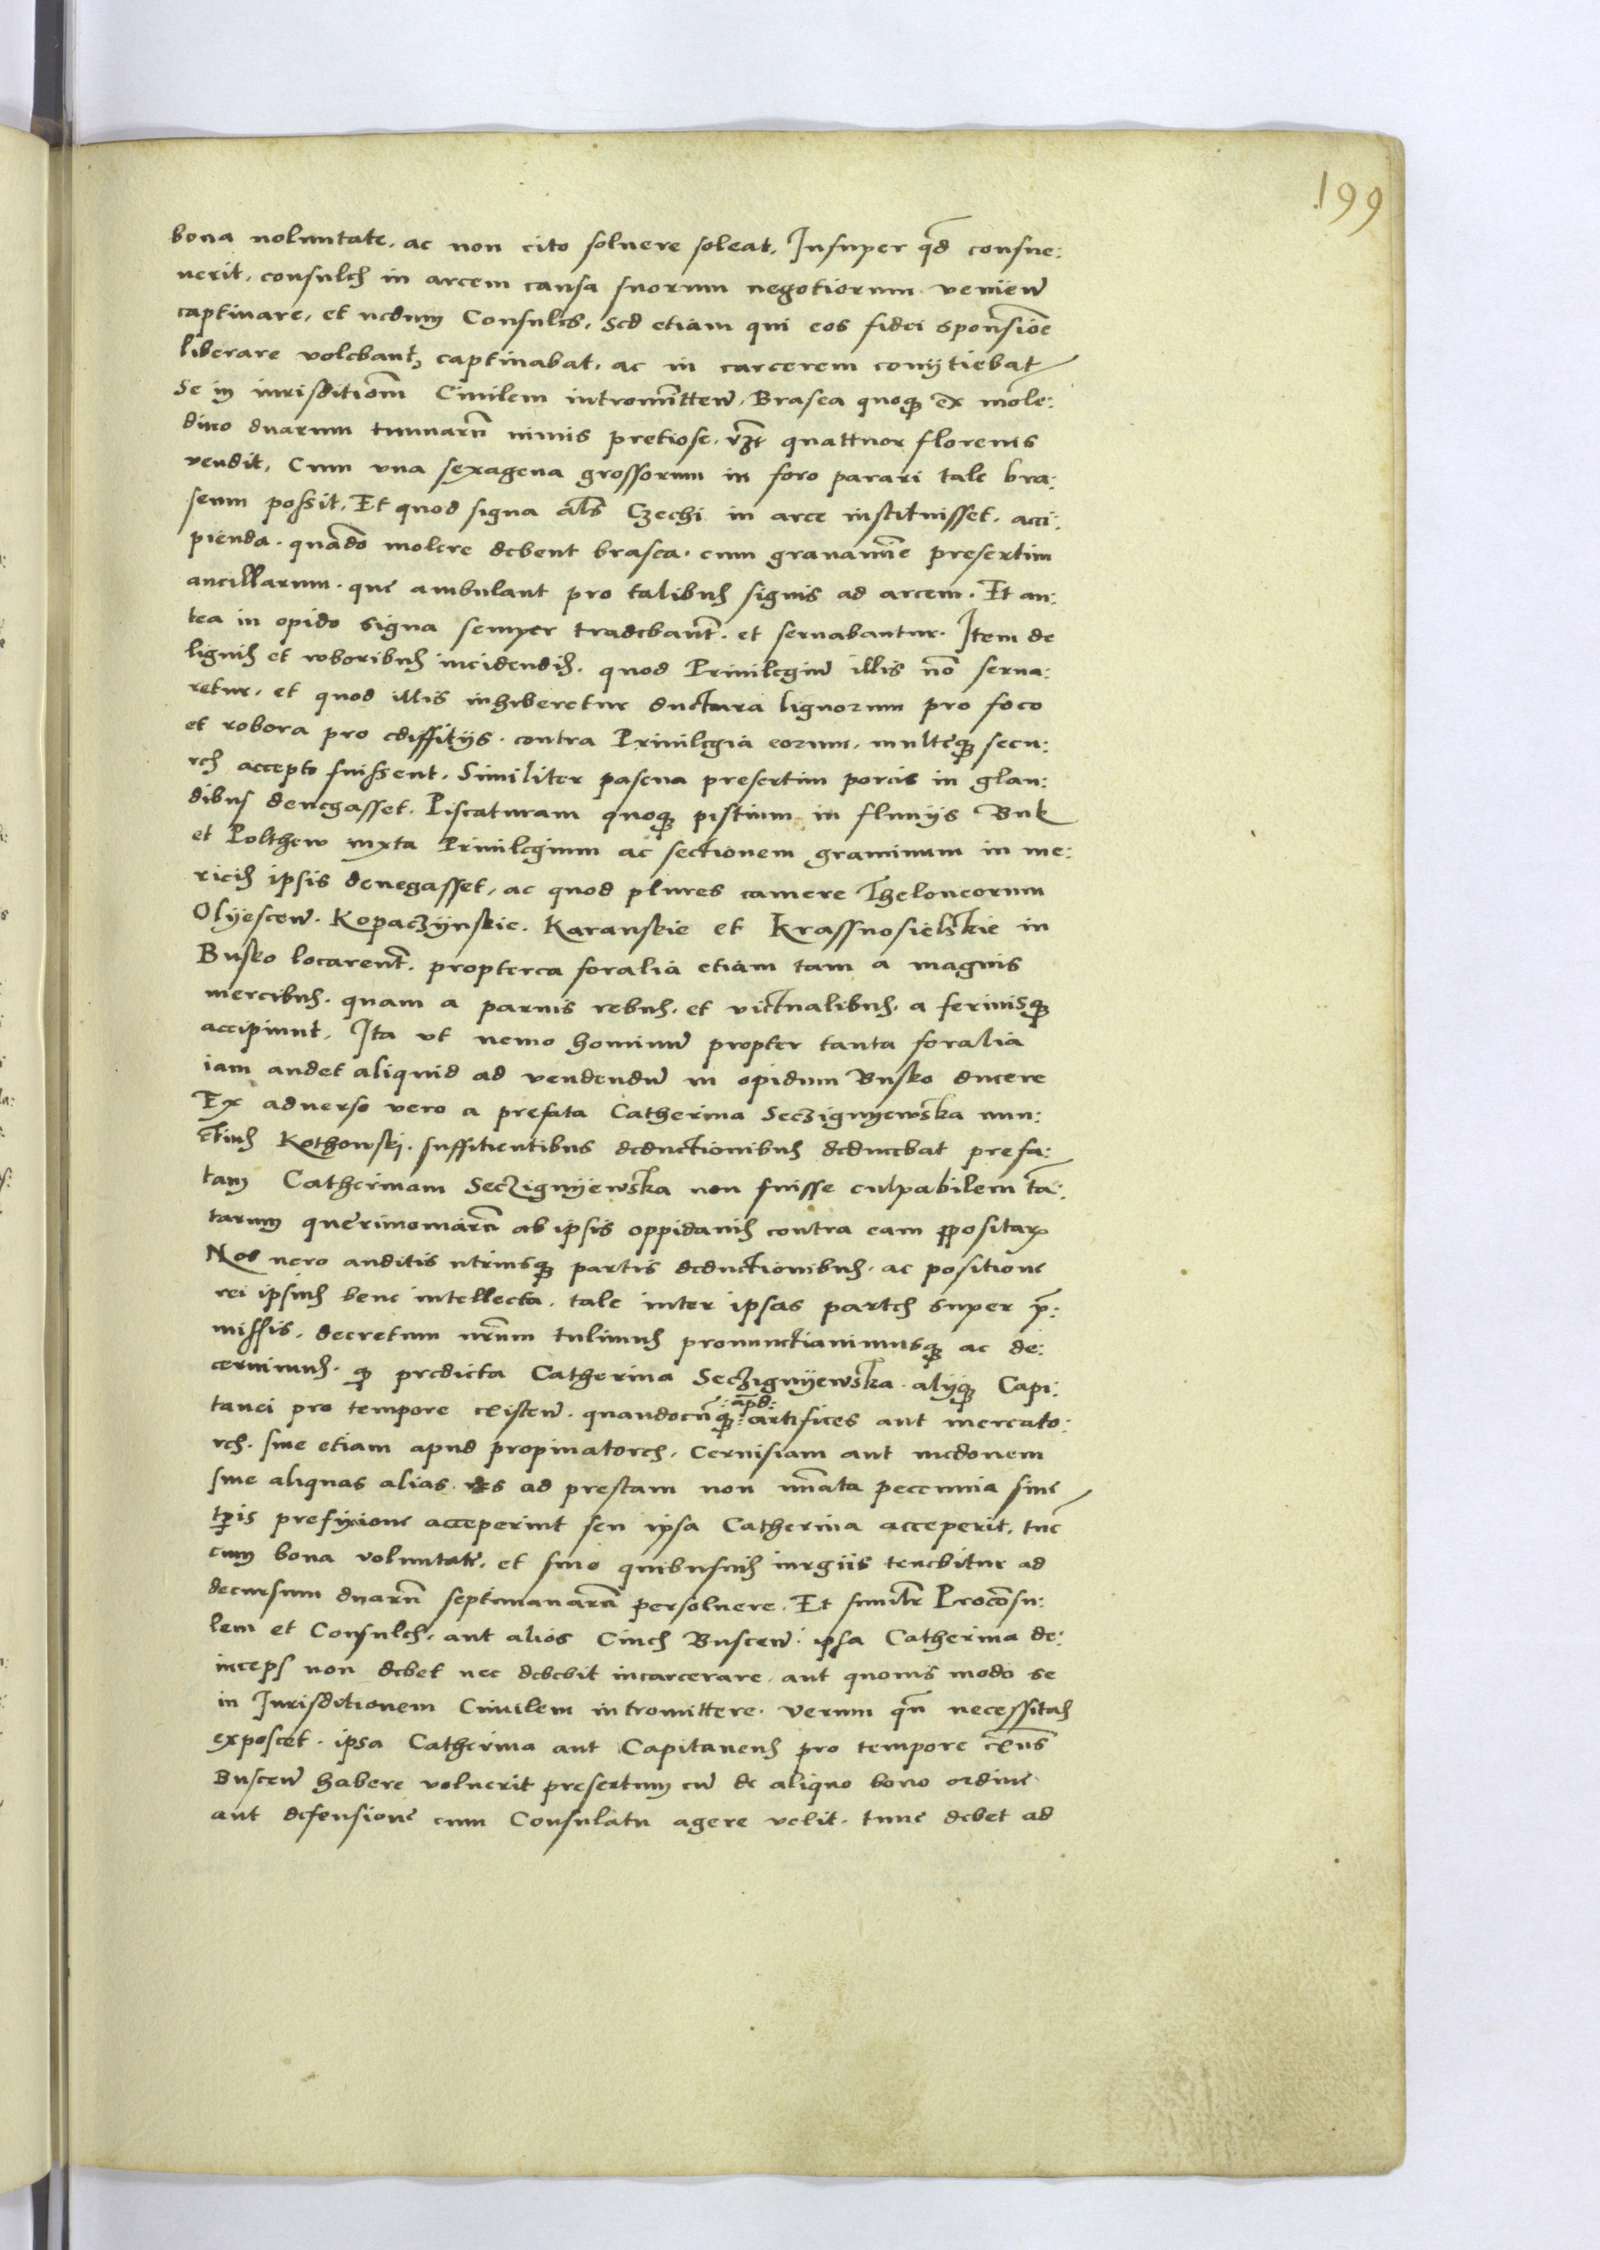 .199
bona uoluntate, ac non cito soluere soleat, Insuper q̄d consue:
uerit, consules in arcem causa suorum negotiorum venien̄
captiuare, et nedum Consules, Sed etiam qui eos fidei sponsiōe
liberare volebant, captiuabat, ac in carcerem conijtiebat
Se in iurisditiōm Ciuilem intromitten̄, Brasea quoq; ex mole:
dino duarum tunnarū nimis pretiose, vz quattuor florenis
vendit, Cum vna sexagena grossorum in foro parari tale bra:
seum possit, Et quod signa als Czechi in arce instituisset, acci:
pienda, quādo molere debent brasea, cum grauamīe presertim
ancillarum, que ambulant pro talibus signis ad arcem. Et an:
tea in opido signa semper tradebant̄, et seruabantur. Item de
lignis et roboribus incidendis, quod Priuilegiū illis nō serua:
retur, et quod illis inhiberetur ductura lignorum pro foco
et robora pro ediffitijs, contra Priuilegia eorum, multeq; secu:
res accepte fuissent. Similiter pascua presertim porcis in glan:
dibus denegasset. Piscaturam quoq; pistium in fluuijs Buk
et Polthew iuxta Priuilegium ac sectionem graminum in me:
ricis ipsis denegasset, ac quod plures camere Theloneorum
Olijescen̄. Kopaczijnskie. Karanskie et Krassnosielskie in
Busko locarent̄, propterea foralia etiam tam a magnis
mercibus, quam a paruis rebus, et victualibus, a ferinisq;
accipiunt, Ita vt nemo hominū propter tanta foralia
iam audet aliquid ad vendendū in opidum Busko ducere
Ex aduerso vero a prefata Catherina Seczignyewska nun:
tius Kothowski, suffitientibus deductionibus deducebat prefa:
tam Catherinam Seczignijewska non fuisse culpabilem tā:
tarum querimoniarū ab ipsis oppidanis contra eam p̄positar
Nos uero auditis utriusq; partis deductionibus, ac positione
rei ipsius bene intellecta, tale inter ipsas partes super p̄:
missis, decretum nr̄um tulimus pronunctiauimusq; ac de:
cernimus, q; predicta Catherina Seczignijewska, alijq; Capi:
tanei pro tempore existen̄, quandocūq; :apd: artifices aut mercato:
res, siue etiam apud propinatores, Ceruisiam aut medonem
siue aliquas alias res ad prestam non nūata peccunia siue
tp̄is prefixione acceperint seu ipsa Catherina acceperit, tuc̄
cum bona voluntate, et sine quibusuis iurgijs tenebitur ad
decursum duarū septimanarū persoluere. Et similr̄ Procōsu:
lem et Consules, aut alios Ciues Buscen̄ ipsa Catherina de:
inceps non debet nec debebit incarcerare, aut quouis modo se
in Jurisditionem Ciuilem intromittere. Verum qn̄ necessitas
exposcet, ipsa Catherina aut Capitaneus pro tempore exn̄s
Buscen̄ habere voluerit presertim cū de aliquo bono ordine
aut defensione cum Consulatu agere velit, tunc debet ad